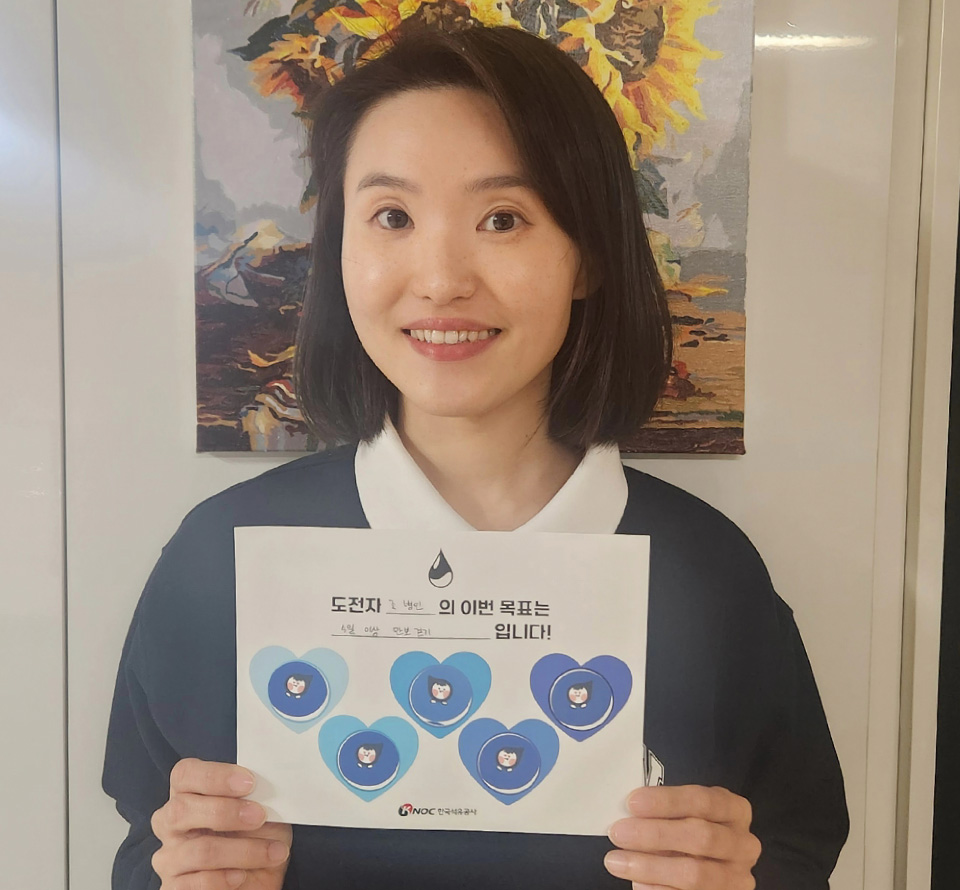 도전자 의 이번 목표는
5월 이상 만보 걷기 입니다!
KNOC 한국석유공사